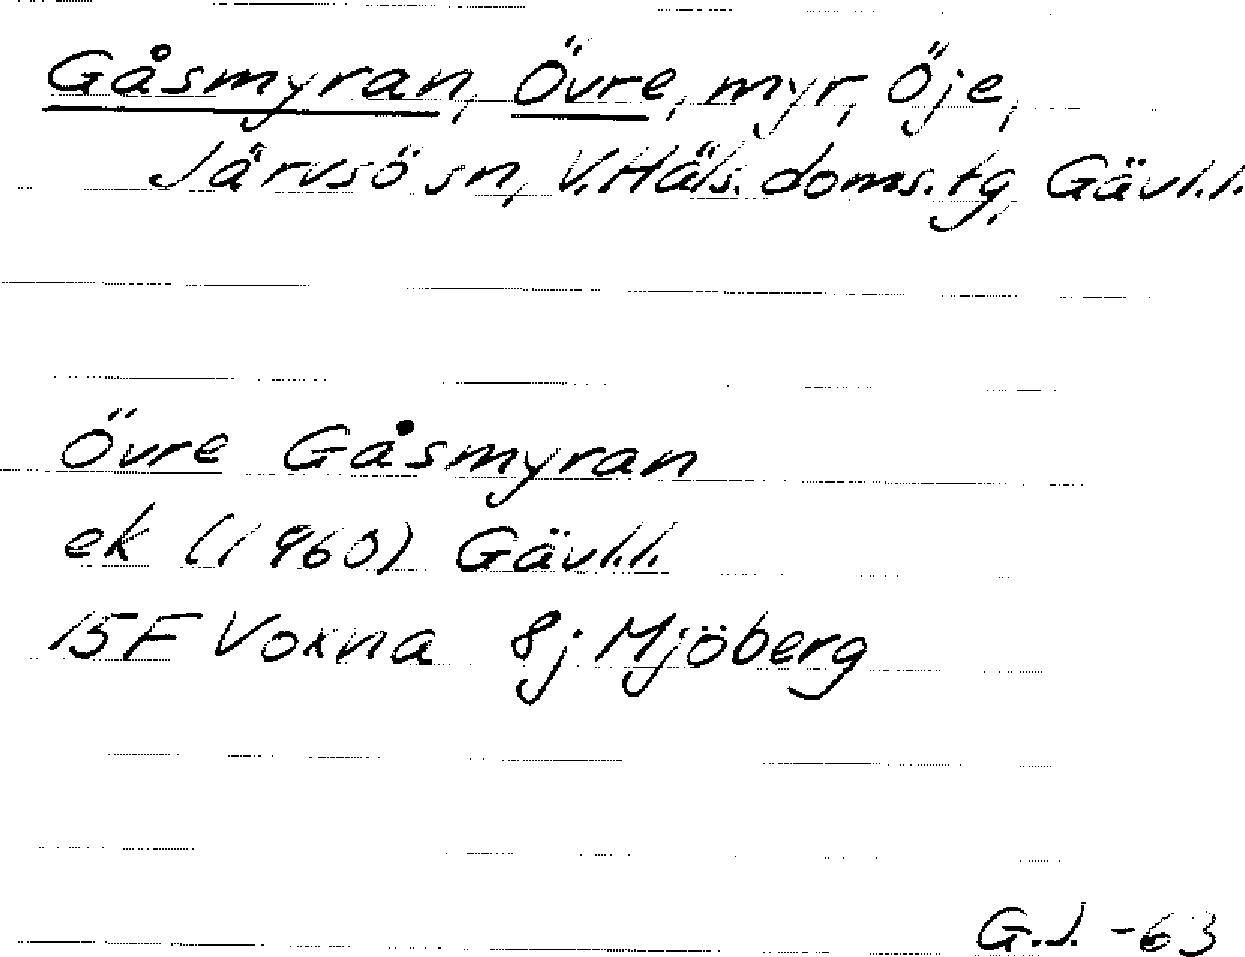 Gåsmyran, Övre, myr, Öje,
Järvsö sn, V.Häls. doms.tg, Gävl.l.
Övre Gåsmyran
ek (1960) Gävl.l.
15F Voxna 8j Mjöberg
G.J. -63